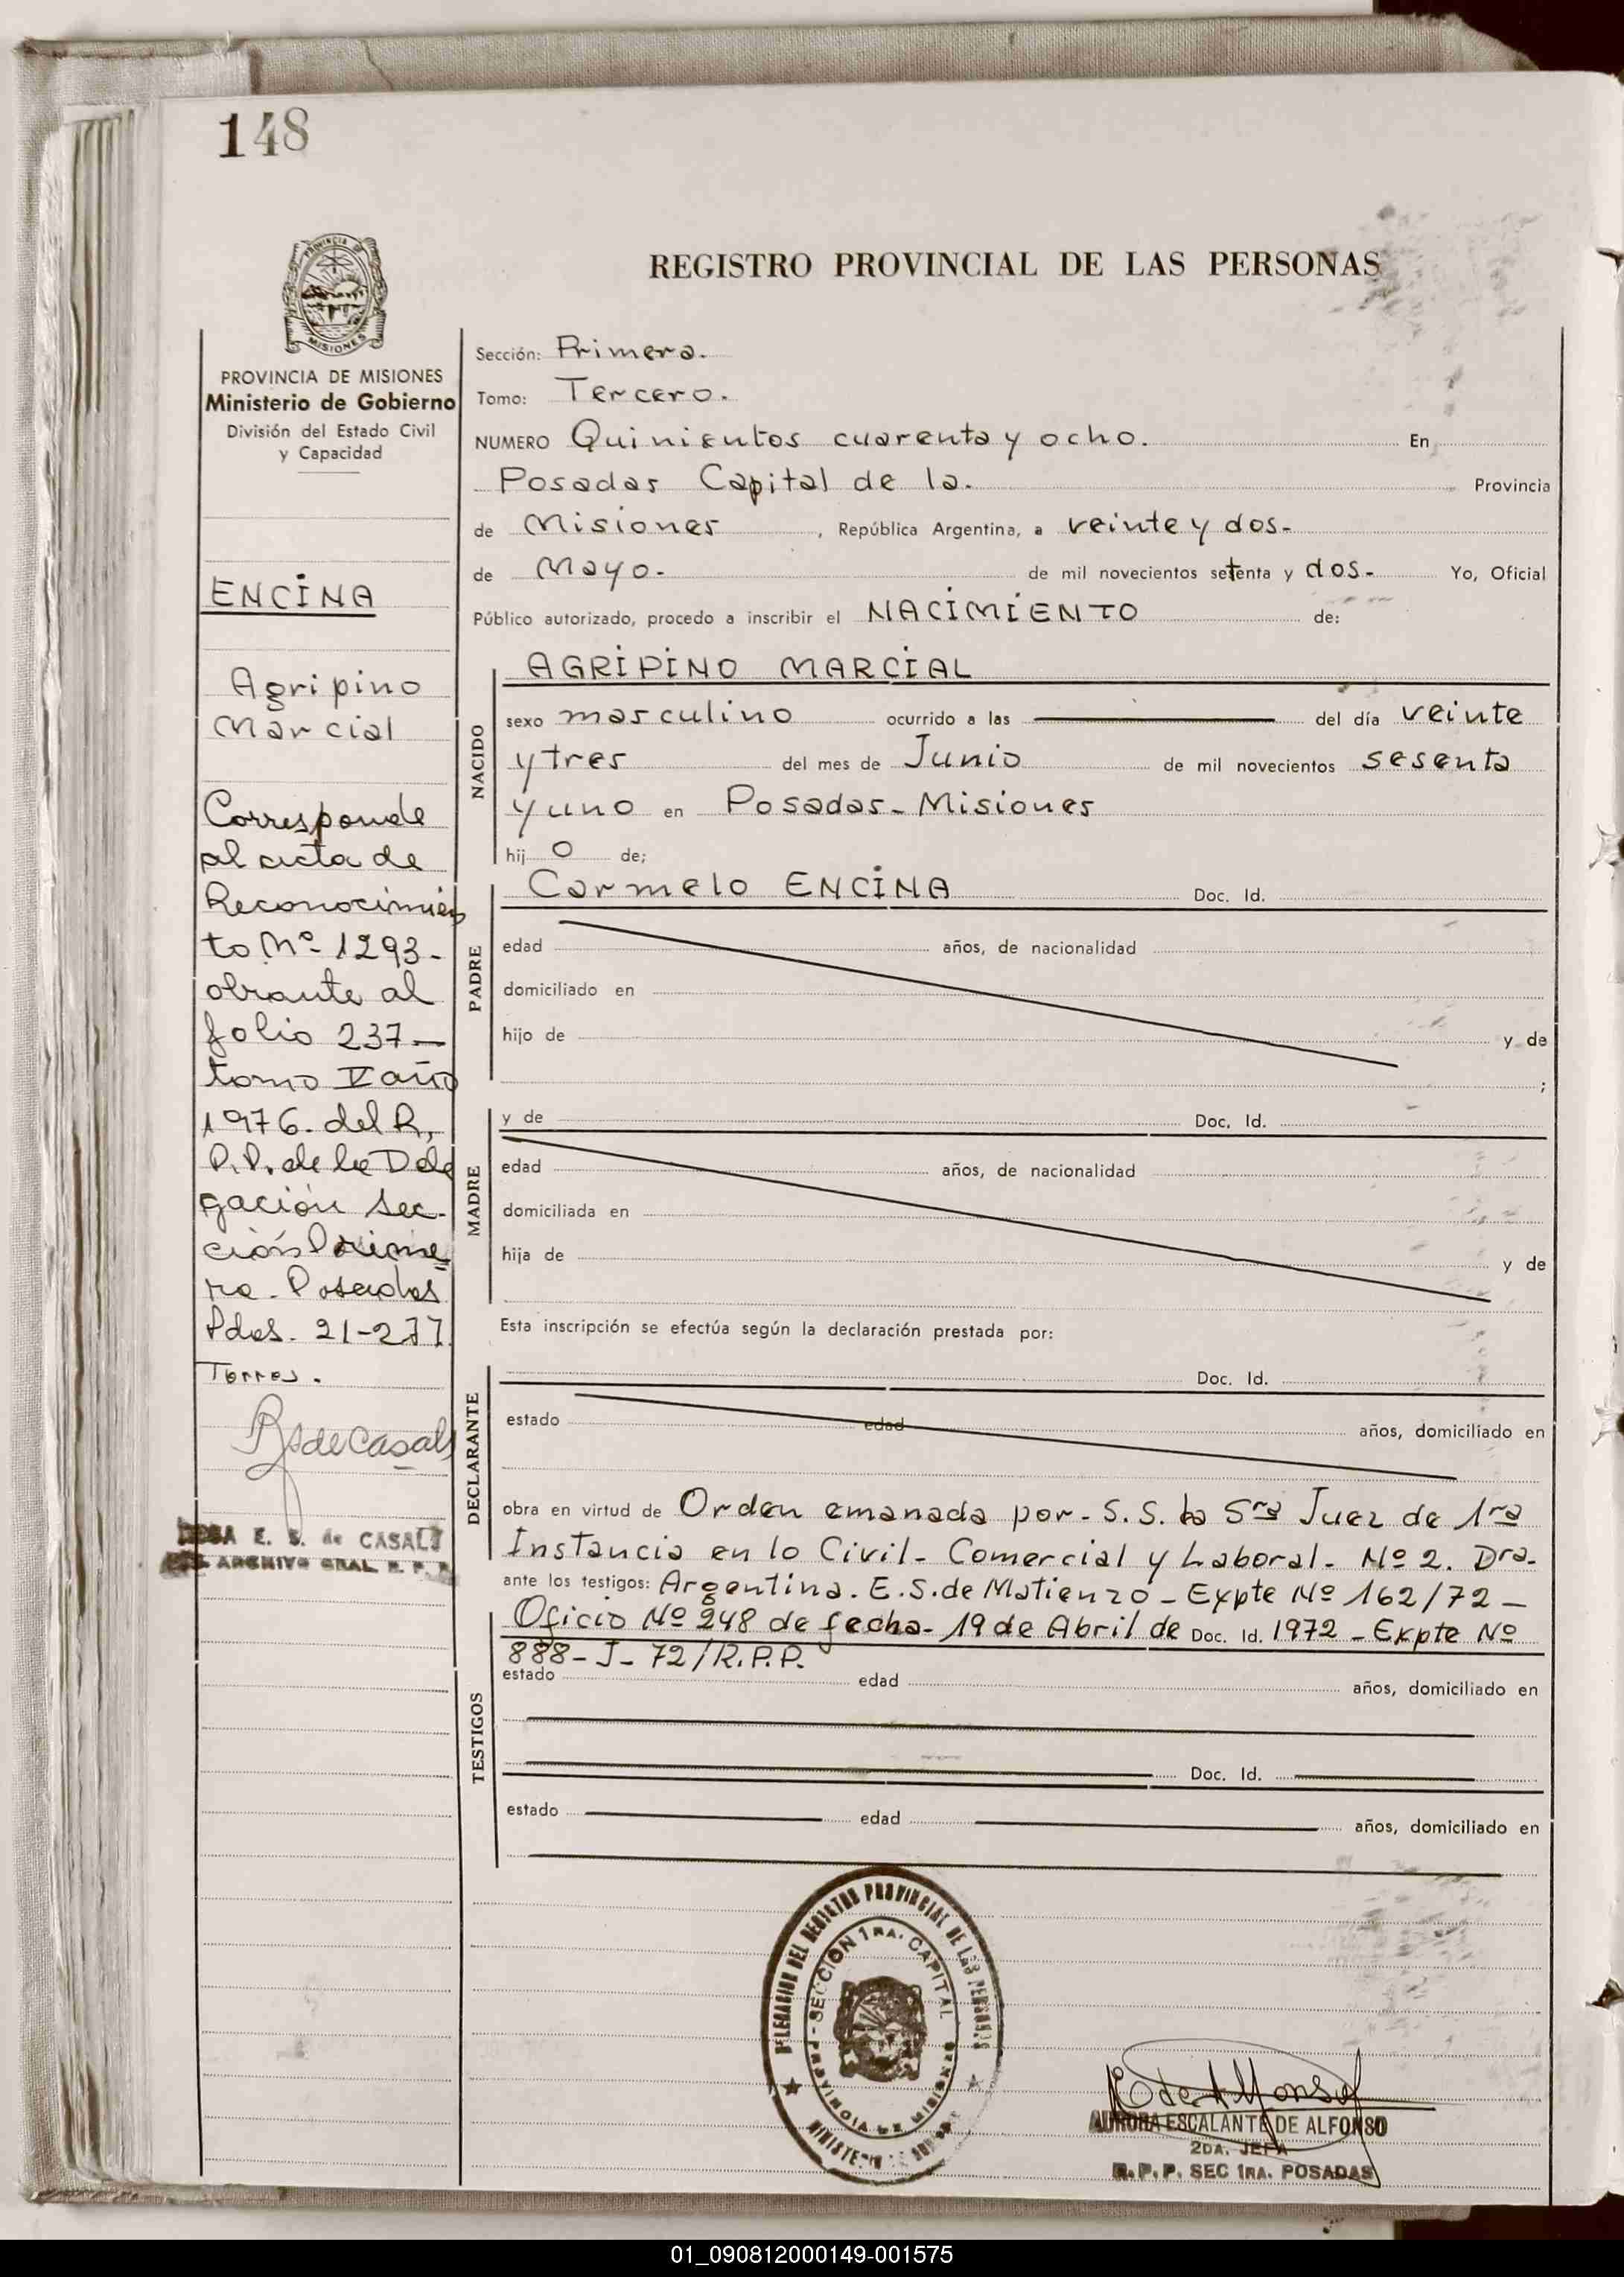 148
PROVINCIA DE
MISIONES
REGISTRO PROVINCIAL DE LAS PERSONAS
PROVINCIA DE MISIONES
Ministerio de Gobierno
División del Estado Civil
y Capacidad
ENCINA
Agripino
Marcial
Corresponde
al acta de
Reconocimien
to Nº 1293-
obrante al
folio 237-
tomo V año
1976. del R.
P.P. de la Dele
gación Sec-
ción Prime
ra - Posadas
Pdas. 21-2-77
Torres.
R S de Casals
E. S. de CASALS
ARCHIVO GRAL. R. P. P.
Sección: Primera.
Tomo: Tercero.
NUMERO Quinientos cuarenta y ocho. En
Posadas Capital de la. Provincia
de Misiones, República Argentina, a veinte y dos-
de Mayo. de mil novecientos setenta y dos- Yo, Oficial
Público autorizado, procedo a inscribir el NACIMIENTO de:
NACIDO
AGRIPINO MARCIAL
sexo masculino ocurrido a las del día veinte
y tres del mes de Junio de mil novecientos sesenta
y uno en Posadas-Misiones
hij o de;
PADRE
Carmelo ENCINA Doc. Id.
edad años, de nacionalidad
domiciliado en
hijo de y de
;
MADRE
y de Doc. Id.
edad años, de nacionalidad
domiciliada en
hija de y de
Esta inscripción se efectúa según la declaración prestada por:
DECLARANTE
Doc. Id.
estado edad años, domiciliado en
obra en virtud de Orden emanada por- S.S. la Sra Juez de 1ra
Instancia en lo Civil- Comercial y Laboral- Nº 2. Dra-
ante los testigos: Argentina. E.S. de Matienzo - Expte Nº 162/72-
Oficio Nº 248 de fecha- 19 de Abril de Doc. Id. 1972 - Expte Nº
888-J-72/R.P.P.
TESTIGOS
estado edad años, domiciliado en
Doc. Id.
estado edad años, domiciliado en
DELEGACION DEL REGISTRO PROVINCIAL DE LAS PERSONAS
SECCION 1RA. CAPITAL
PROVINCIA DE MISIONES
E de Alfonso
AURORA ESCALANTE DE ALFONSO
2DA. JEFA
R.P.P. SEC 1RA. POSADAS
01_090812000149-001575